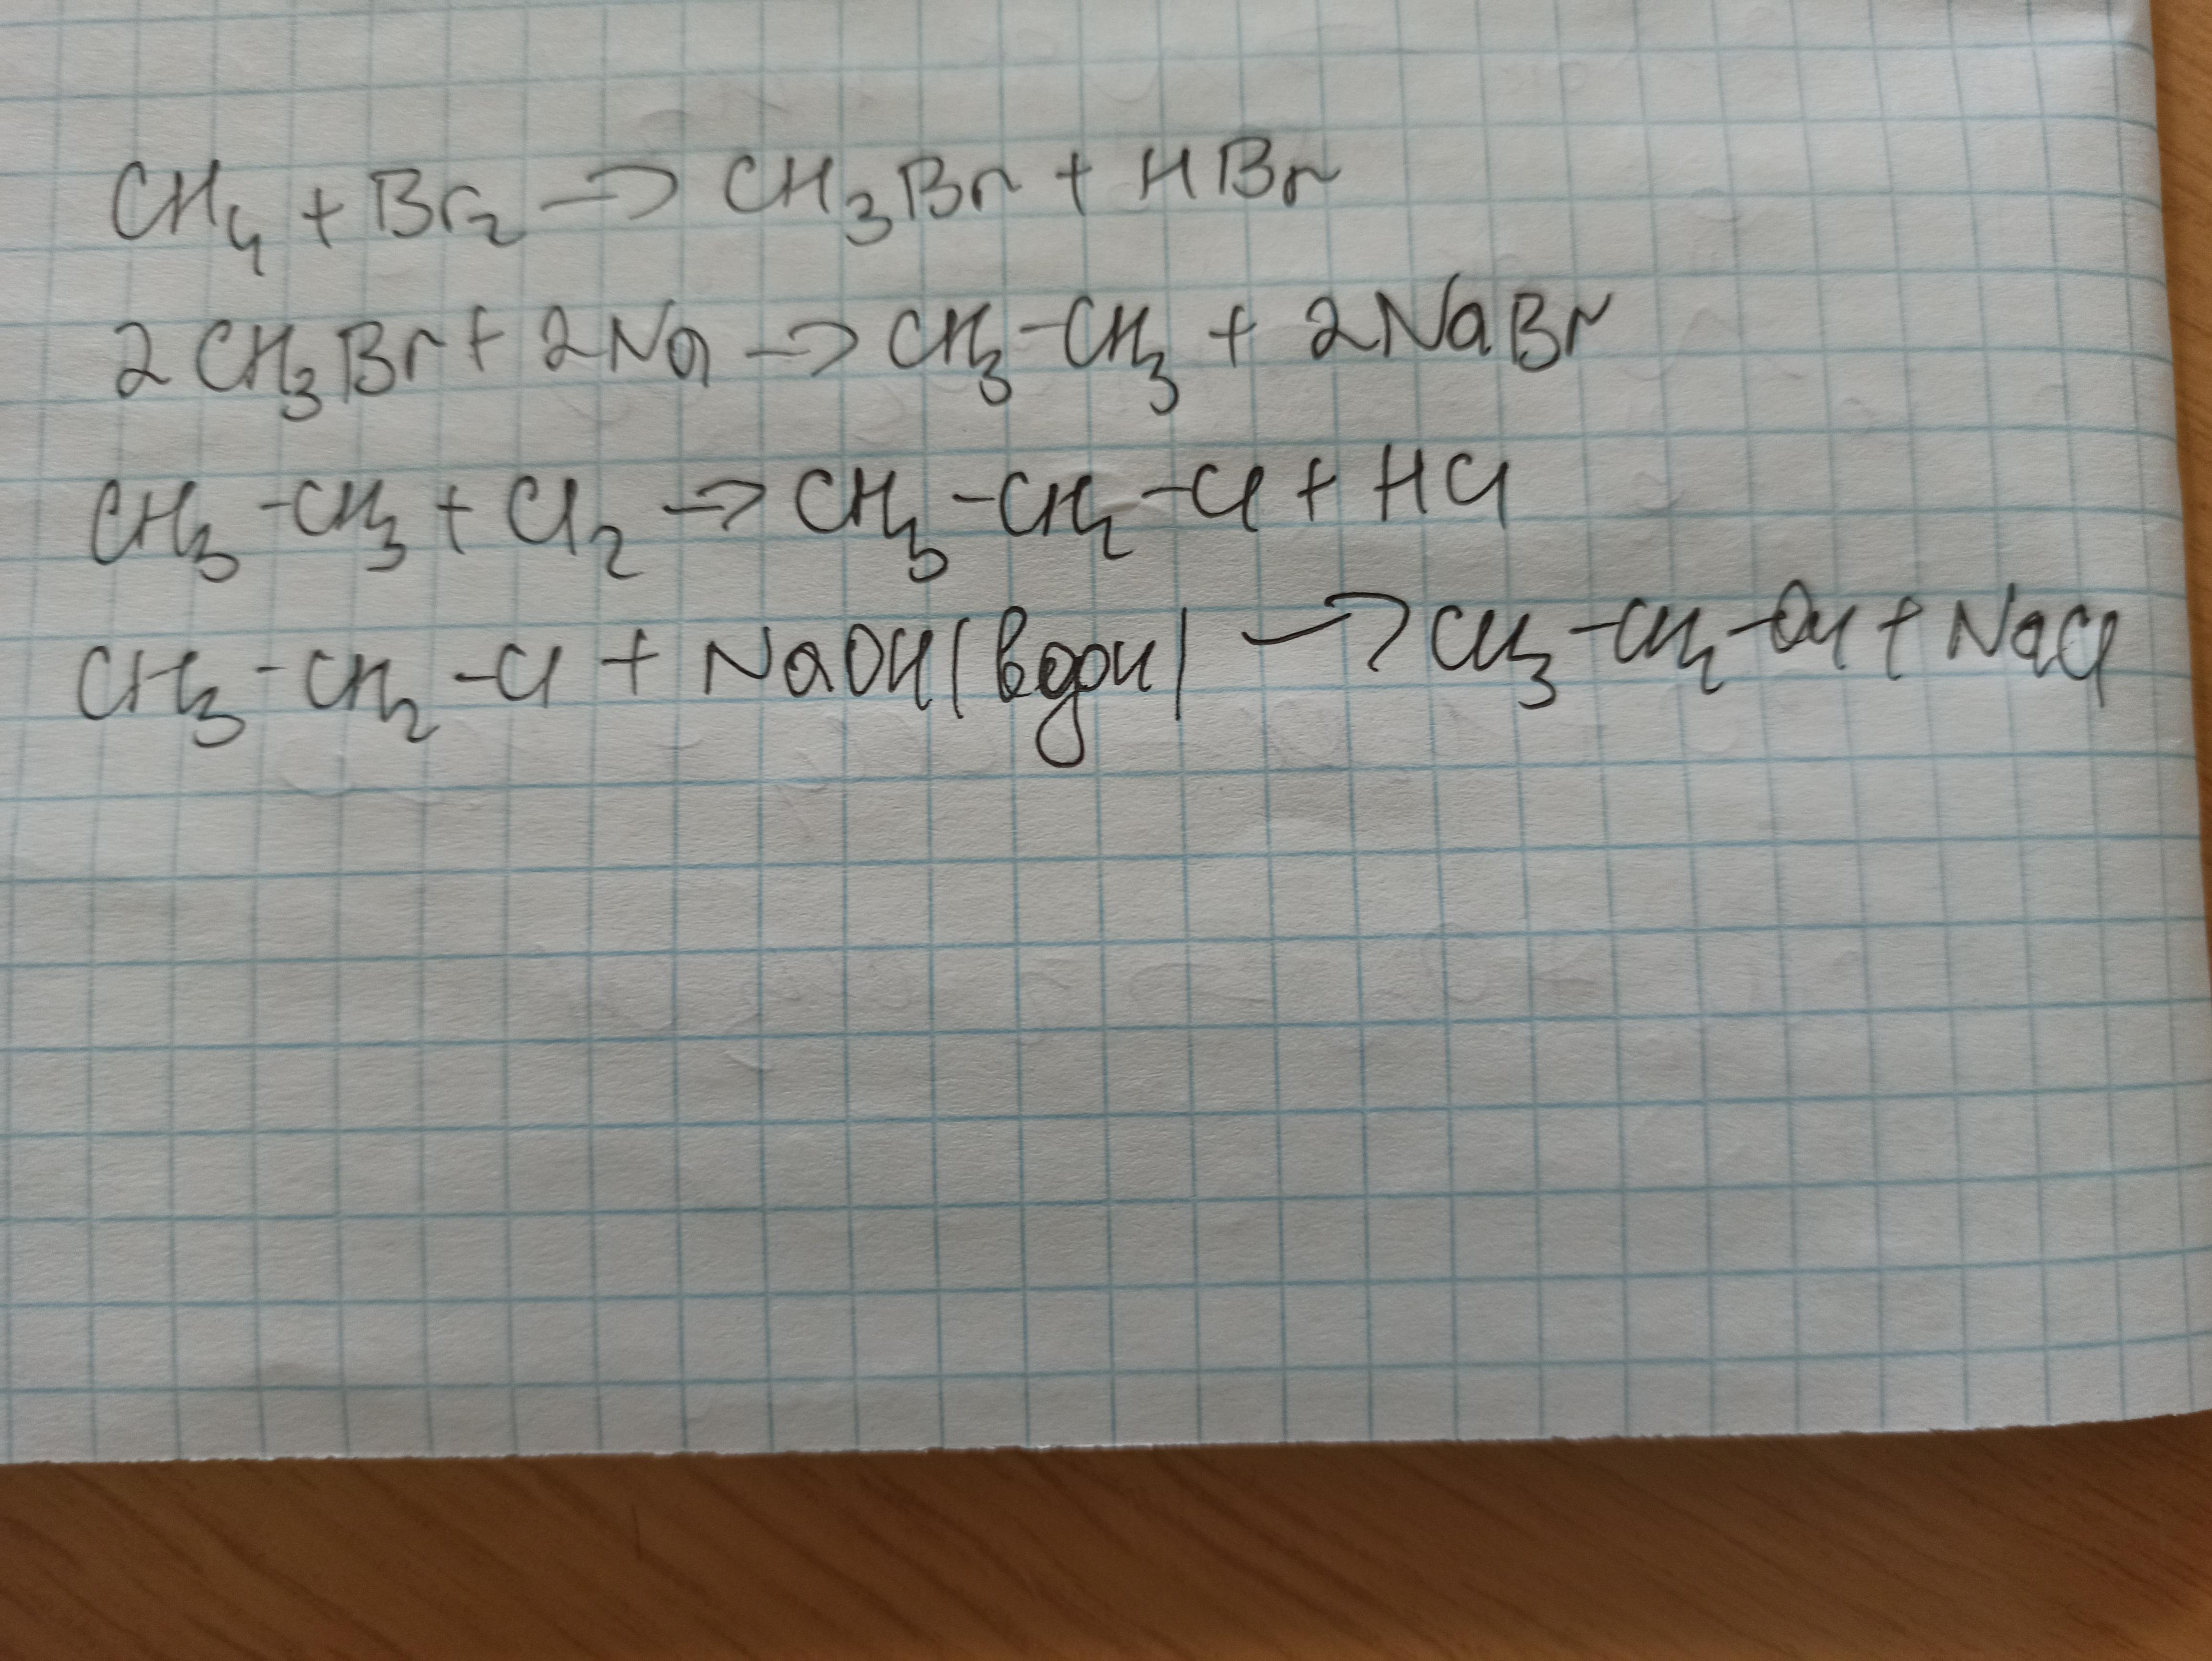 CH₄ + Br₂ → CH₃Br + HBr
2CH₃Br + 2Na → CH₃-CH₃ + 2NaBr
CH₃-CH₃ + Cl₂ → CH₃-CH₂-Cl + HCl
CH₃-CH₂-Cl + NaOH(водн) → CH₃-CH₂-OH + NaCl